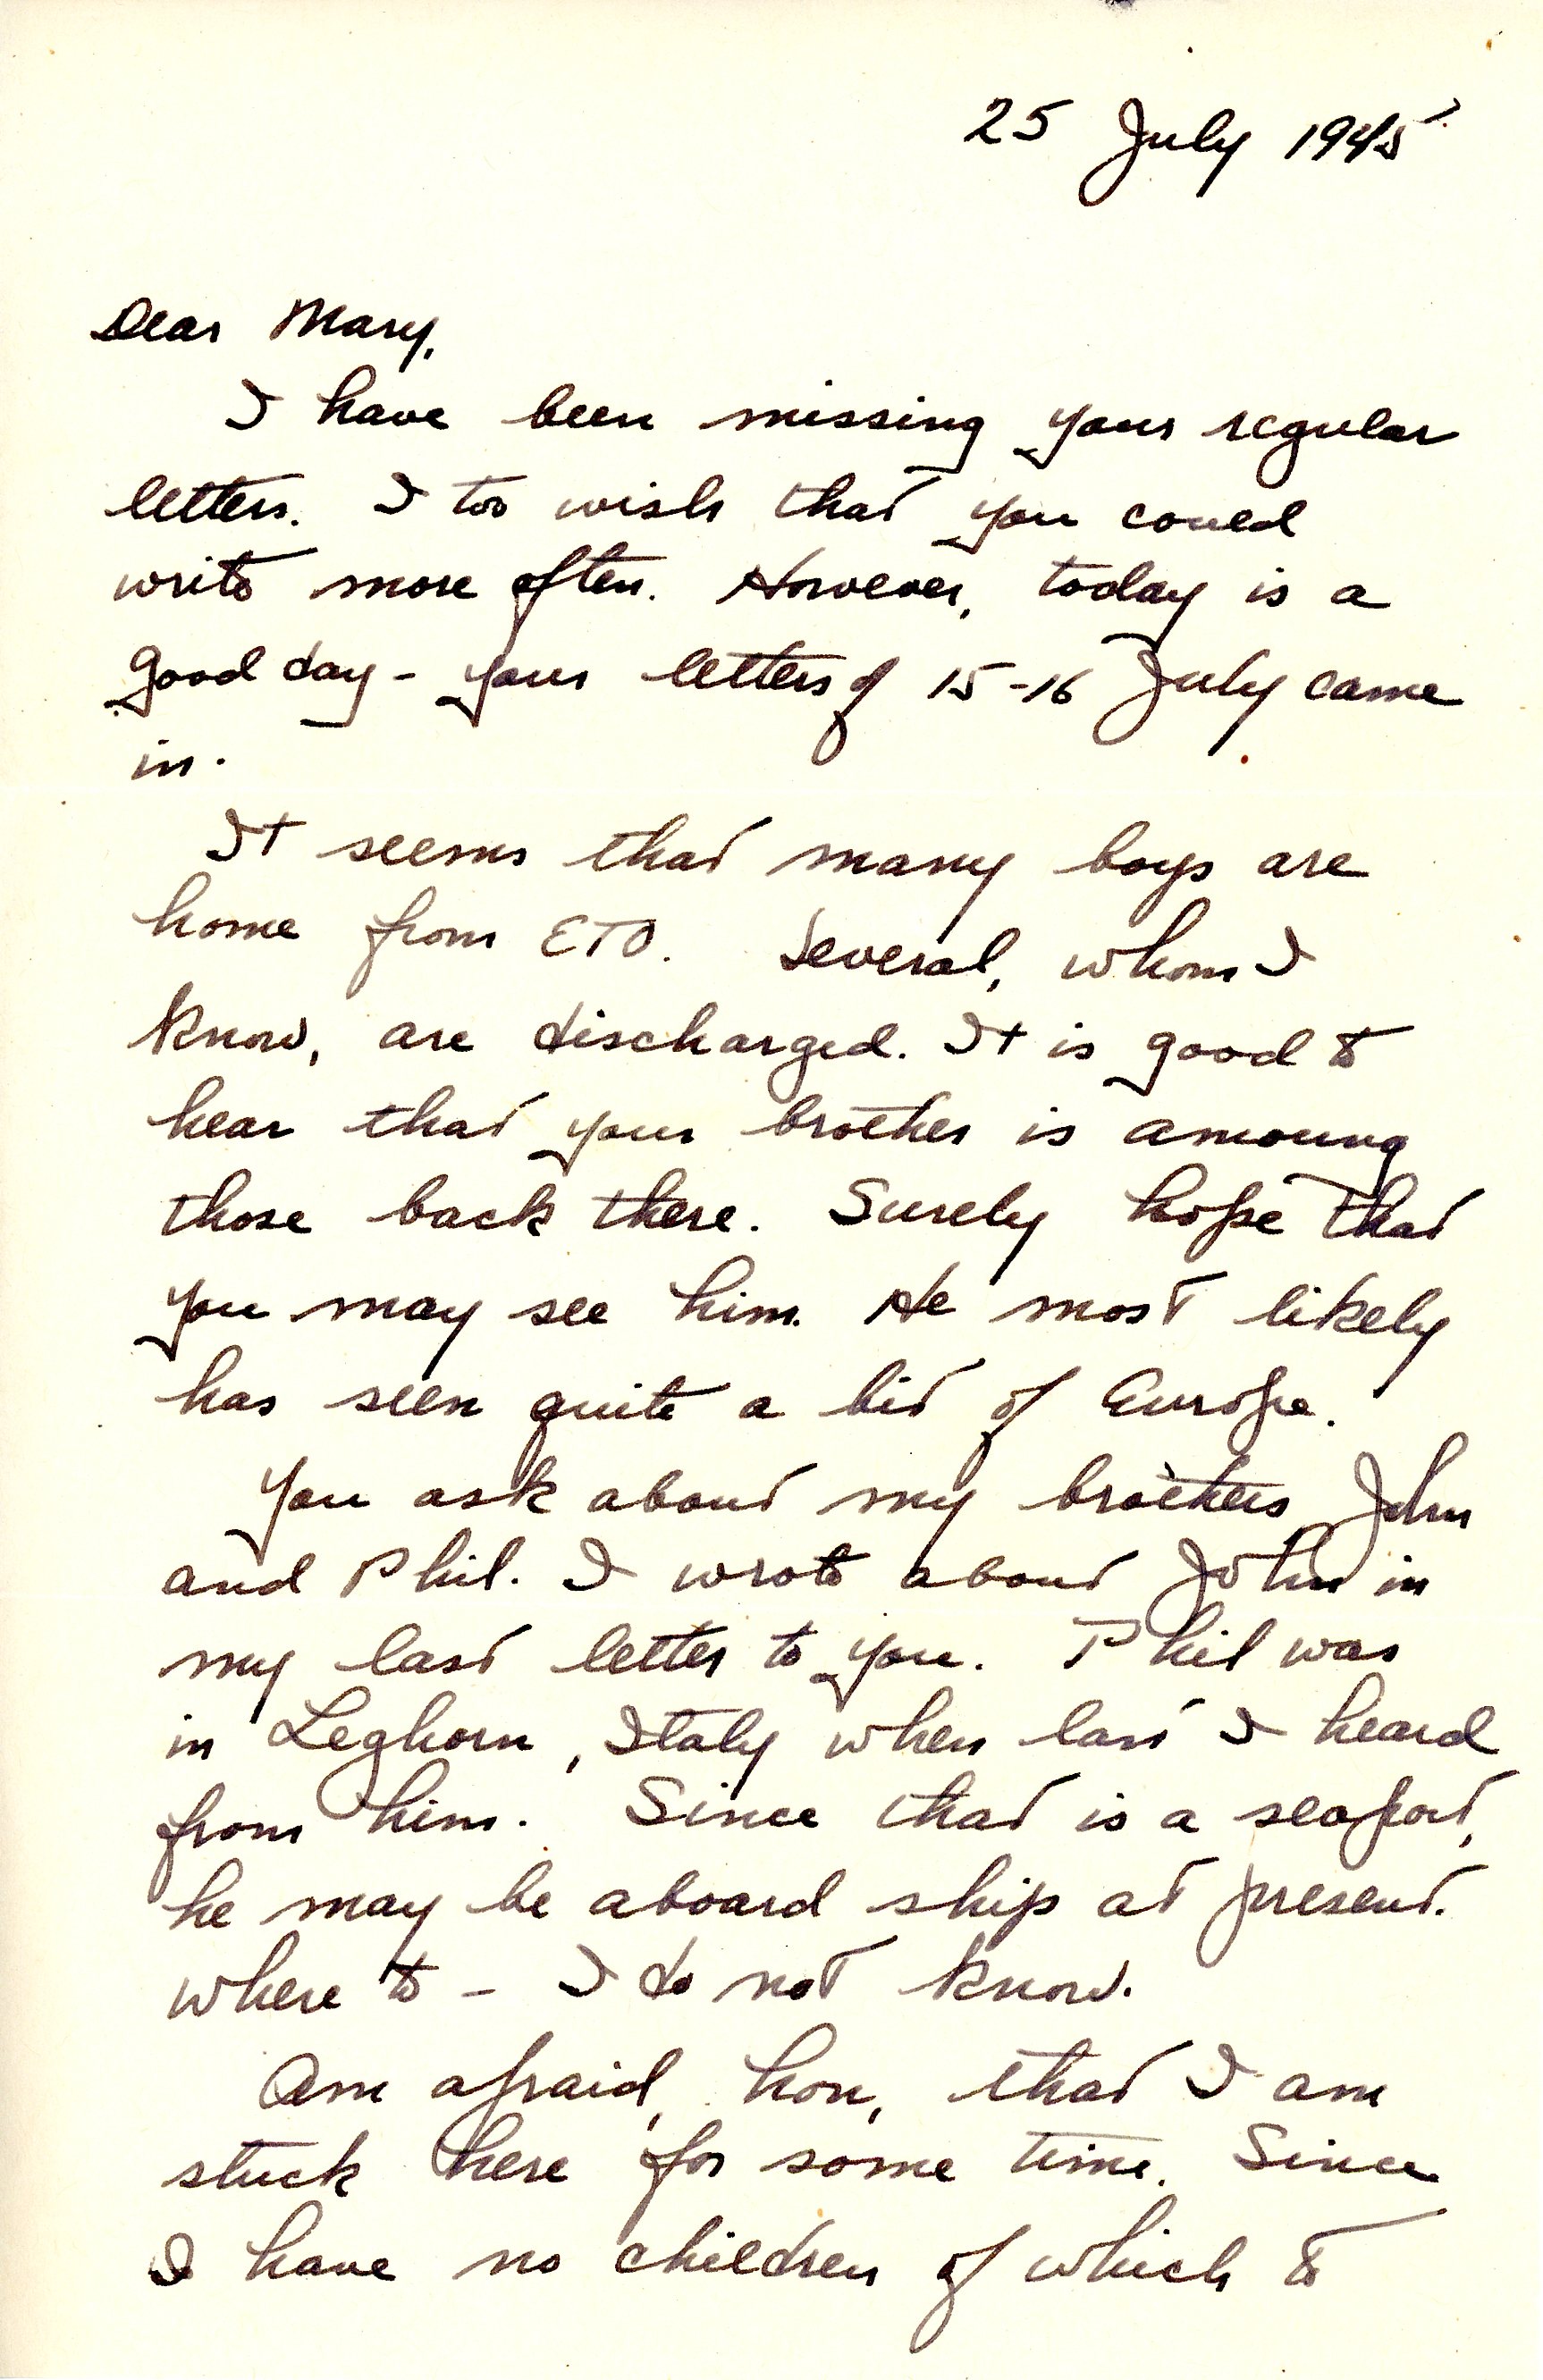 25 July 1945
Dear Mary,
I have been missing your regular
letters. I too wish that you could
write more often. However, today is a
good day - your letters of 15-16 July came
in.
It seems that many boys are
home from ETO. Several, whom I
know, are discharged. It is good to
hear that your brother is amoung
those back there. Surely hope that
you may see him. He most likely
has seen quite a bit of Europe.
You ask about my brothers, John
and Phil. I wrote about John in
my last letter to you. Phil was
in Leghorn, Italy when last I heard
from him. Since that is a seaport,
he may be aboard ship at present.
where to - I do not know.
Am afraid, hon, that I am
stuck here for some time. Since
I have no children of which to